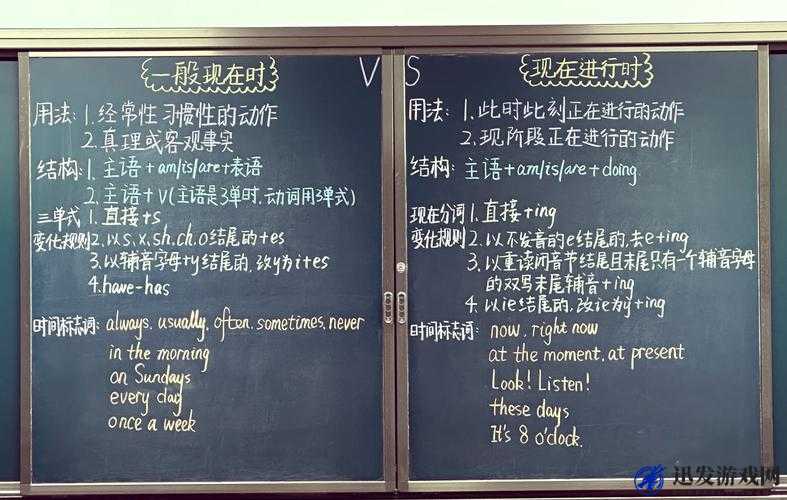 一般现在时
用法: 1. 经常性 习惯性的动作
2. 真理或客观事实
结构: 1. 主语+am/is/are+表语
2. 主语+V(主语是3单时,动词用3单式)
三单式 1. 直接+s
变化规则 2. 以s,x,sh,ch,o结尾的+es
3. 以辅音字母+y结尾的,改y为i+es
4. have-has
时间标志词: always, usually, often, sometimes, never
in the morning
on Sundays
every day
once a week
V S
现在进行时
用法: 1. 此时此刻正在进行的动作
2. 现阶段正在进行的动作
结构: 主语+am/is/are+doing
现在分词 1. 直接+ing
变化规则 2. 以不发音的e结尾的,去e+ing
3. 以重读闭音节结尾且末尾只有一个辅音字母
的双写末尾辅音+ing
4. 以ie结尾的,改ie为y+ing
时间标志词: now, right now
at the moment, at present
Look! Listen!
these days
It's 8 o'clock.
迅发游戏网